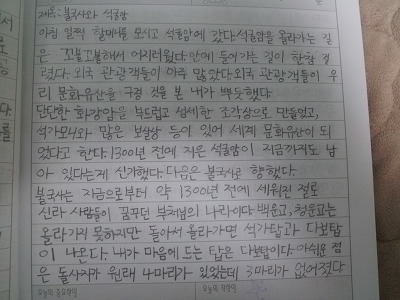 제목: 불국사와 석굴암
아침 일찍 할머니를 모시고 석굴암에 갔다. 석굴암을 올라가는 길
은 꼬불꼬불해서 어지러웠다. 안에 들어가는 길이 한참 걸
렸다. 외국 관광객들이 아주 많았다. 외국 관광객들이 우
리 문화유산을 구경 것을 본 내가 뿌듯했다.
단단한 화강암을 부드럽고 섬세한 조각상으로 만들었고,
석가모니와 많은 보살상 등이 있어 세계 문화유산이 되
었다고 한다. 1300년 전에 지은 석굴암이 지금까지도 남
아 있다는게 신기했다. 다음은 불국사로 향했다.
불국사는 지금으로부터 약 1300년 전에 세워진 절로
신라 사람들이 꿈꾸던 부처님의 나라이다. 백운교, 청운교는
올라가지 못하지만 돌아서 올라가면 석가탑과 다보탑
이 나온다. 내가 마음에 드는 탑은 다보탑이다. 아쉬운 점
은 돌사자가 원래 4마리가 있었는데 3마리가 없어졌다
오늘의 중요일
오늘의 착한일